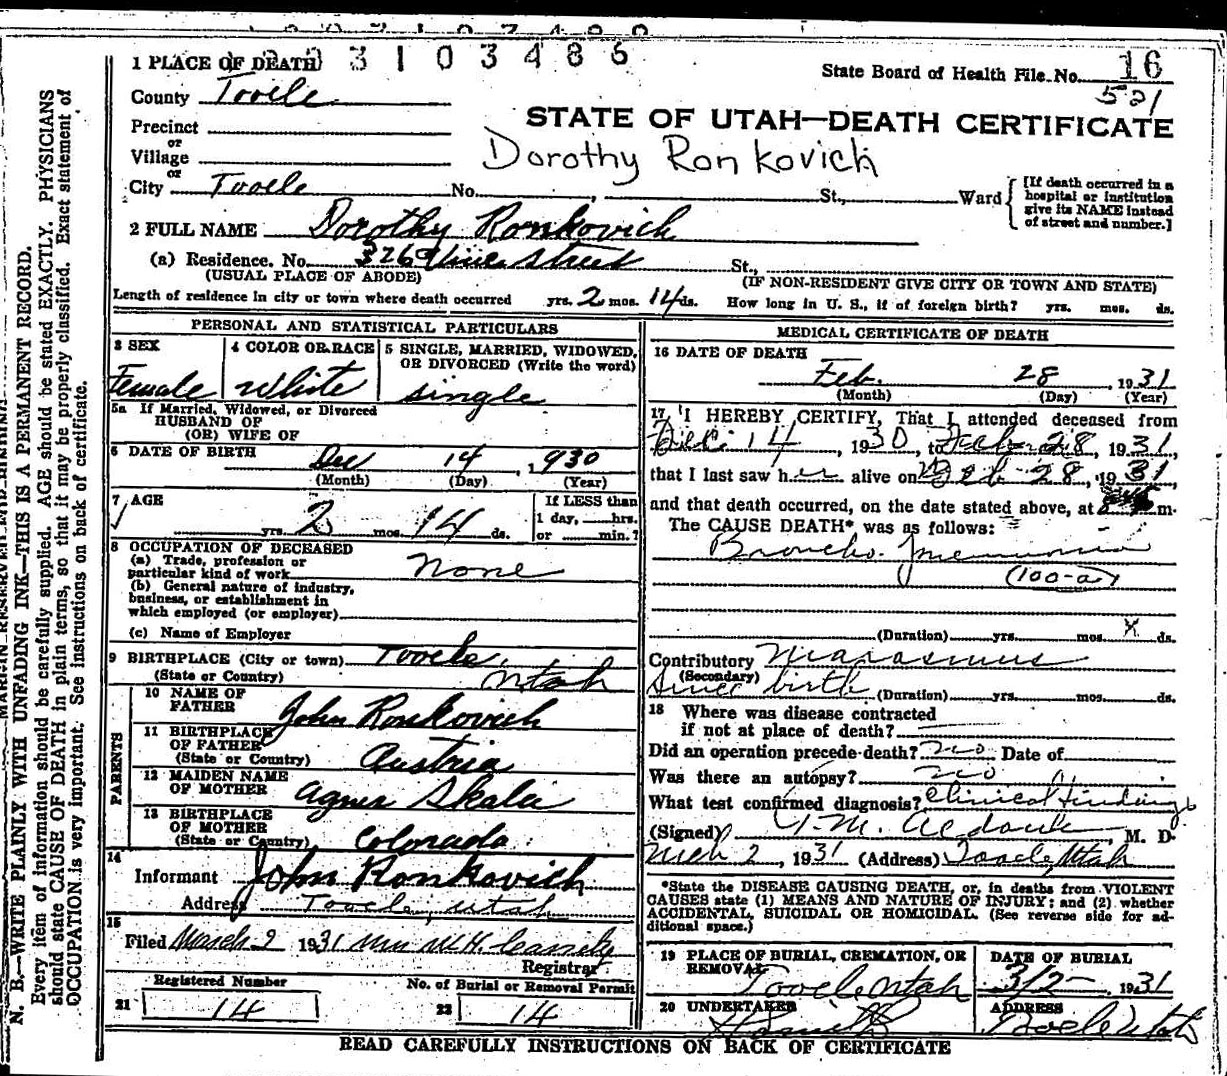 1 PLACE OF DEATH 3 1 0 3 4 8 6
State Board of Health File No. 16
521
County Tooele
STATE OF UTAH—DEATH CERTIFICATE
Precinct
or
Village
Dorothy Ronkovich
or
City Tooele No. St., Ward
[If death occurred in a
hospital or institution
give its NAME instead
of street and number.]
2 FULL NAME Dorothy Ronkovich
(a) Residence. No. 326 Vine street St.,
(USUAL PLACE OF ABODE) (IF NON-RESIDENT GIVE CITY OR TOWN AND STATE)
Length of residence in city or town where death occurred yrs. 2 mos. 14 ds. How long in U. S., if of foreign birth? yrs. mos. ds.
PERSONAL AND STATISTICAL PARTICULARS
3 SEX 4 COLOR OR RACE 5 SINGLE, MARRIED, WIDOWED,
OR DIVORCED (Write the word)
Female White single
5a If Married, Widowed, or Divorced
HUSBAND OF
(OR) WIFE OF
6 DATE OF BIRTH Dec 14, 1930
(Month) (Day) (Year)
7 AGE
yrs. 2 mos. 14 ds.
If LESS than
1 day, hrs.
or min.?
8 OCCUPATION OF DECEASED
(a) Trade, profession or
particular kind of work None
(b) General nature of industry,
business, or establishment in
which employed (or employer)
(c) Name of Employer
9 BIRTHPLACE (City or town) Tooele,
(State or Country) Utah
PARENTS
10 NAME OF
FATHER John Ronkovich
11 BIRTHPLACE
OF FATHER
(State or Country) Austria
12 MAIDEN NAME
OF MOTHER Agnes Skala
13 BIRTHPLACE
OF MOTHER
(State or Country) Colorado
14
Informant John Ronkovich
Address Tooele, Utah
15
Filed March 2 1931 Mrs W.H. Cassity
Registrar
Registered Number No. of Burial or Removal Permit
21 14 22 14
MEDICAL CERTIFICATE OF DEATH
16 DATE OF DEATH
Feb. 28, 1931
(Month) (Day) (Year)
17 I HEREBY CERTIFY, That I attended deceased from
Dec. 14, 1930, to Feb 28, 1931,
that I last saw her alive on Feb 28, 1931,
and that death occurred, on the date stated above, at m.
The CAUSE DEATH* was as follows:
Broncho. Pneumonia
(100-a)
(Duration) yrs. mos. X ds.
Contributory Marasmus
(Secondary)
Since birth (Duration) yrs. mos. ds.
18 Where was disease contracted
if not at place of death?
Did an operation precede death? no Date of
Was there an autopsy? no
What test confirmed diagnosis? Clinical findings
(Signed) M. D.
Mch 2, 1931 (Address) Tooele, Utah
*State the DISEASE CAUSING DEATH, or, in deaths from VIOLENT
CAUSES state (1) MEANS AND NATURE OF INJURY; and (2) whether
ACCIDENTAL, SUICIDAL OR HOMICIDAL. (See reverse side for ad-
ditional space.)
19 PLACE OF BURIAL, CREMATION, OR
REMOVAL
Tooele Utah
DATE OF BURIAL
3/2- 1931
20 UNDERTAKER
ADDRESS
Tooele Utah
READ CAREFULLY INSTRUCTIONS ON BACK OF CERTIFICATE
N. B.—WRITE PLAINLY WITH UNFADING INK—THIS IS A PERMANENT RECORD.
Every item of information should be carefully supplied. AGE should be stated EXACTLY. PHYSICIANS
should state CAUSE OF DEATH in plain terms, so that it may be properly classified. Exact statement of
OCCUPATION is very important. See instructions on back of certificate.